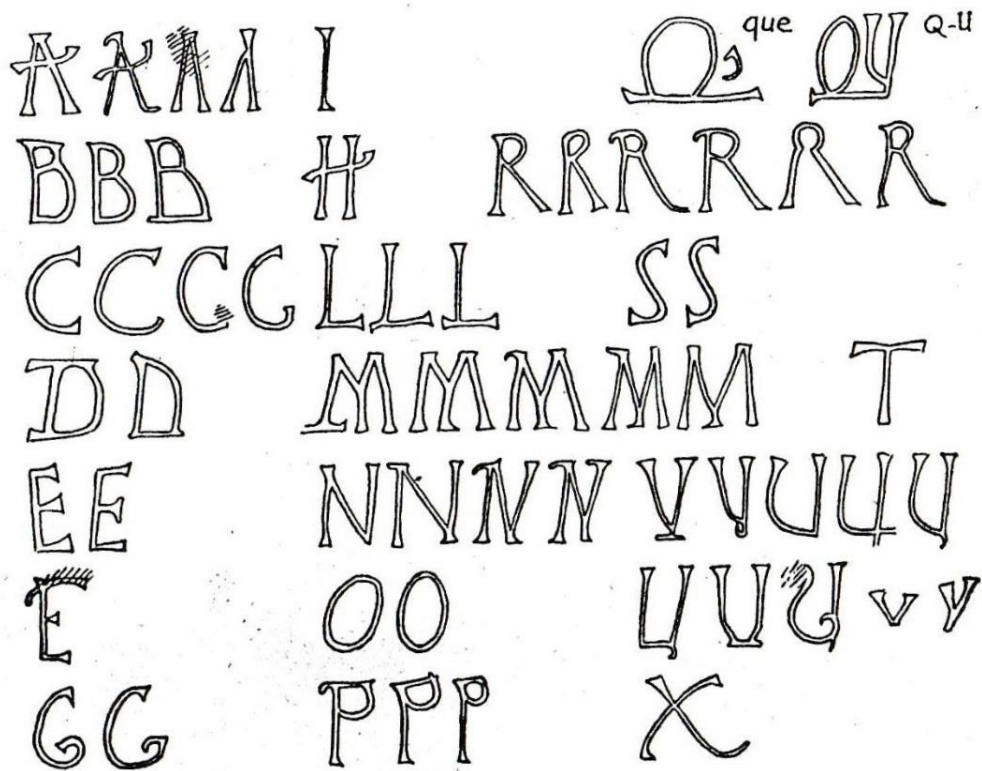 A A A A I Q que QU Q-U
B B B H R R R R R R
C C C C L L L S S
D D M M M M M T
E E N N N N V V U U U
E O O U U U V V
G G P P P X